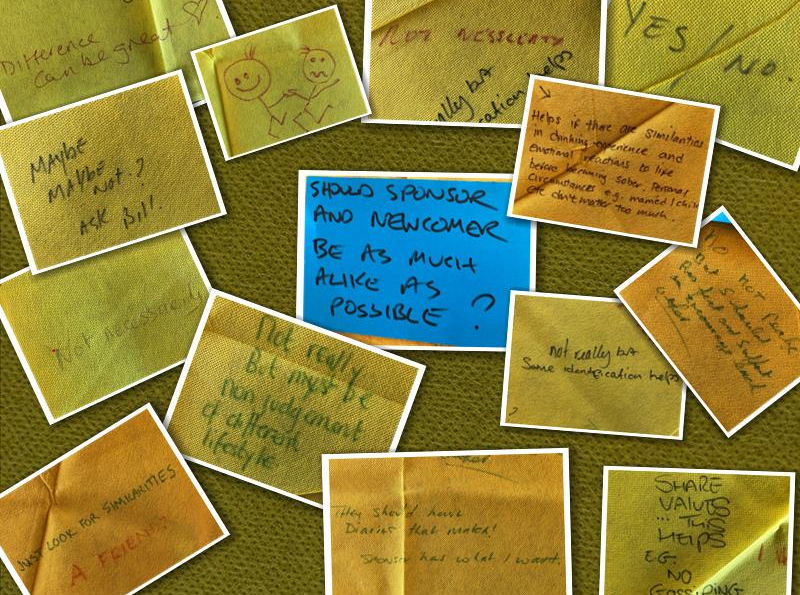 Difference
can be great
NOT NESSCERTY
really but
cation helps
YES / NO.
MAYBE
MAYBE
NOT?
ASK BILL!
Helps if there are similarities
in drinking experience and
emotional reactions to life
before becoming sober. Personal
circumstances e.g. married / child
etc don't matter too much.
SHOULD SPONSOR
AND NEWCOMER
BE AS MUCH
ALIKE AS
POSSIBLE ?
Not necessarily
Not really
But must be
non judgement
of different
lifestyle
not really but
Some identification helps
?
JUST LOOK FOR SIMILARITIES
A FRIEND?
they should have
Diaries that match!
SPONSOR has what I want.
SHARE
VALUES
... THIS
HELPS
E.G.
NO
GOSSIPING